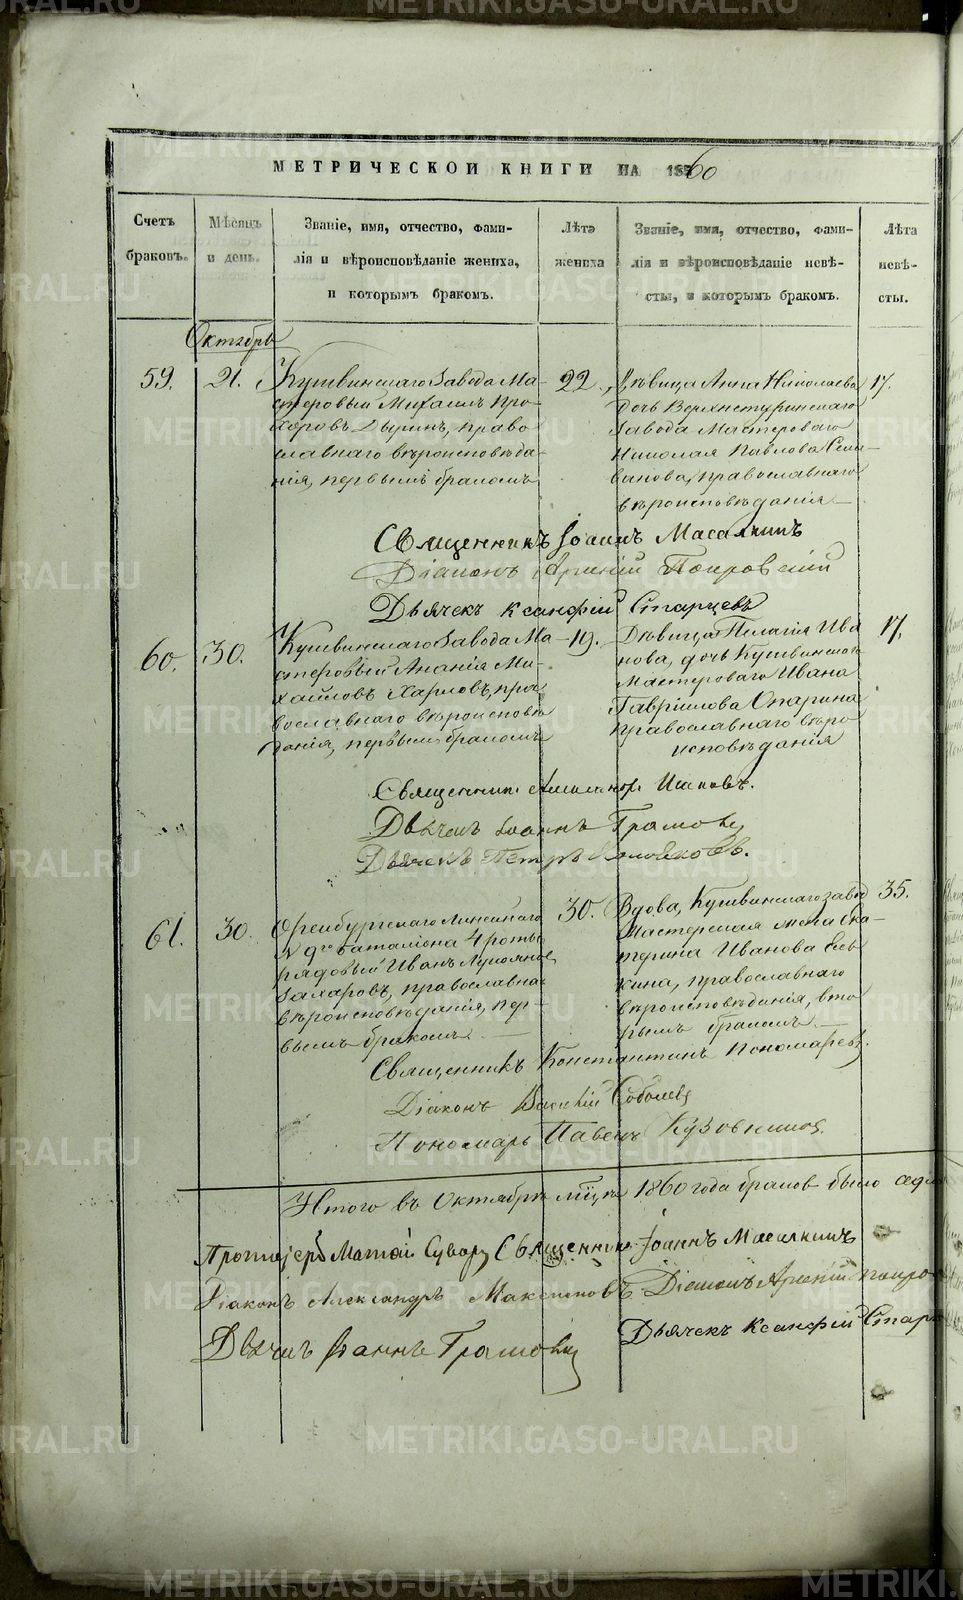 METRIKI.GASO-URAL.RU
МЕТРИЧЕСКОЙ КНИГИ НА 1860
Счетъ браковъ.
Мѣсяцъ и день.
Званіе, имя, отчество, фами-
лія и вѣроисповѣданіе жениха,
и которымъ бракомъ.
Лѣта жениха
Званіе, имя, отчество, фами-
лія и вѣроисповѣданіе невѣ-
сты, и которымъ бракомъ.
Лѣта невѣ-
сты.
Октябрь
59.
21.
Кушвинскаго Завода Ма-
стеровый Михаилъ Про-
хоровъ Дылинъ, право
славнаго вѣроисповѣда-
нія, первымъ бракомъ
22.
Дѣвица Анна Николаева
дочь Верхнетуринскаго
Завода Мастероваго
Николая Павлова Сели-
ванова, православнаго
вѣроисповѣданія
17.
Священникъ Іоаннъ Масалкинъ
Діаконъ Арсеній Покровскій
Дьячекъ Ксанфій Старцевъ
60.
30.
Кушвинскаго Завода Ма-
стеровый Ананія Ми-
хайловъ Харловъ, пра
вославнаго вѣроисповѣ
данія, первымъ бракомъ
19.
Дѣвица Пелагія Ива
нова, дочь Кушвинскаго
Мастероваго Ивана
Гаврилова Опарина
православнаго вѣро
исповѣданія
17.
Священник Александр Ишковъ.
Дьячекъ Іоаннъ Грамо
Дьячекъ Петръ
61.
30.
Оренбургскаго Линейнаго
баталіона 4 роты
рядовый Иванъ Лукояновъ
Захаровъ, православна
вѣроисповѣданія, пер-
вымъ бракомъ
30.
Вдова, Кушвинскаго завод
Мастерская жена Ека-
терина Иванова Ель
кина, православнаго
вѣроисповѣданія, вто
рымъ бракомъ
35.
Священникъ Константинъ Пономаревъ.
Діаконъ Василій Соболевъ
Пономарь Павелъ Кузовников
Итого въ Октябрѣ мѣсяцѣ 1860 года браков было седм
Протоіерей Матѳій Сувору Священникъ Іоаннъ Масалкинъ
Діаконъ Александръ Максимовъ Діаконъ Арсеній Покро
Дьячекъ Іоаннъ Грамо
Дьячекъ Ксанфій Старц